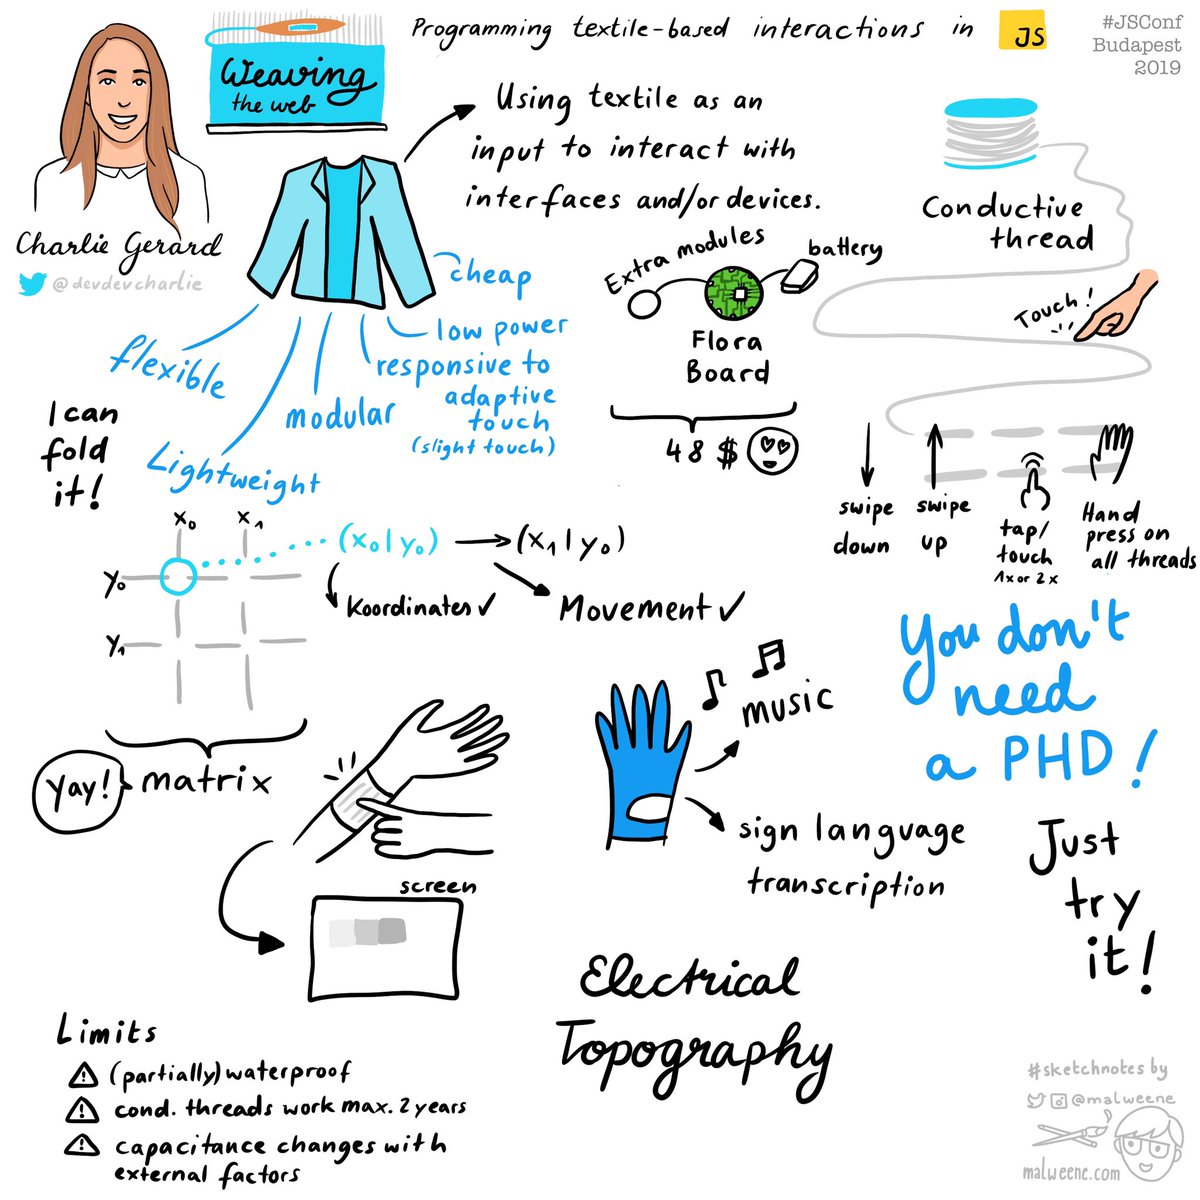 Programming textile-based interactions in JS
#JSConf
Budapest
2019
Weaving
the web
Charlie Gerard
@devdevcharlie
Using textile as an
input to interact with
interfaces and/or devices.
cheap
low power
responsive to
adaptive
touch
(slight touch)
modular
flexible
Lightweight
I can
fold
it!
Extra modules
battery
Flora
Board
48 $
Conductive
thread
Touch!
swipe
down
swipe
up
tap/
touch
1x or 2x
Hand
press on
all threads
x0 x1
y0
y1
(x0|y0) (x1|y0)
Koordinates ✓
Movement ✓
Yay!
matrix
screen
music
sign language
transcription
You don't
need
a PHD!
Just
try
it!
Electrical
Topography
Limits
(partially) waterproof
cond. threads work max. 2 years
capacitance changes with
external factors
#sketchnotes by
@malweene
malweene.com